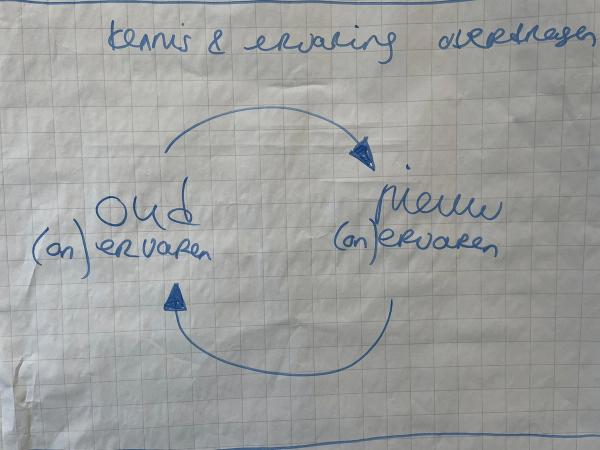 kennis & ervaring overdragen
oud
(on) ervaren
nieuw
(on) ervaren